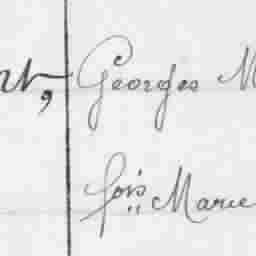 Georges M
fois Marie